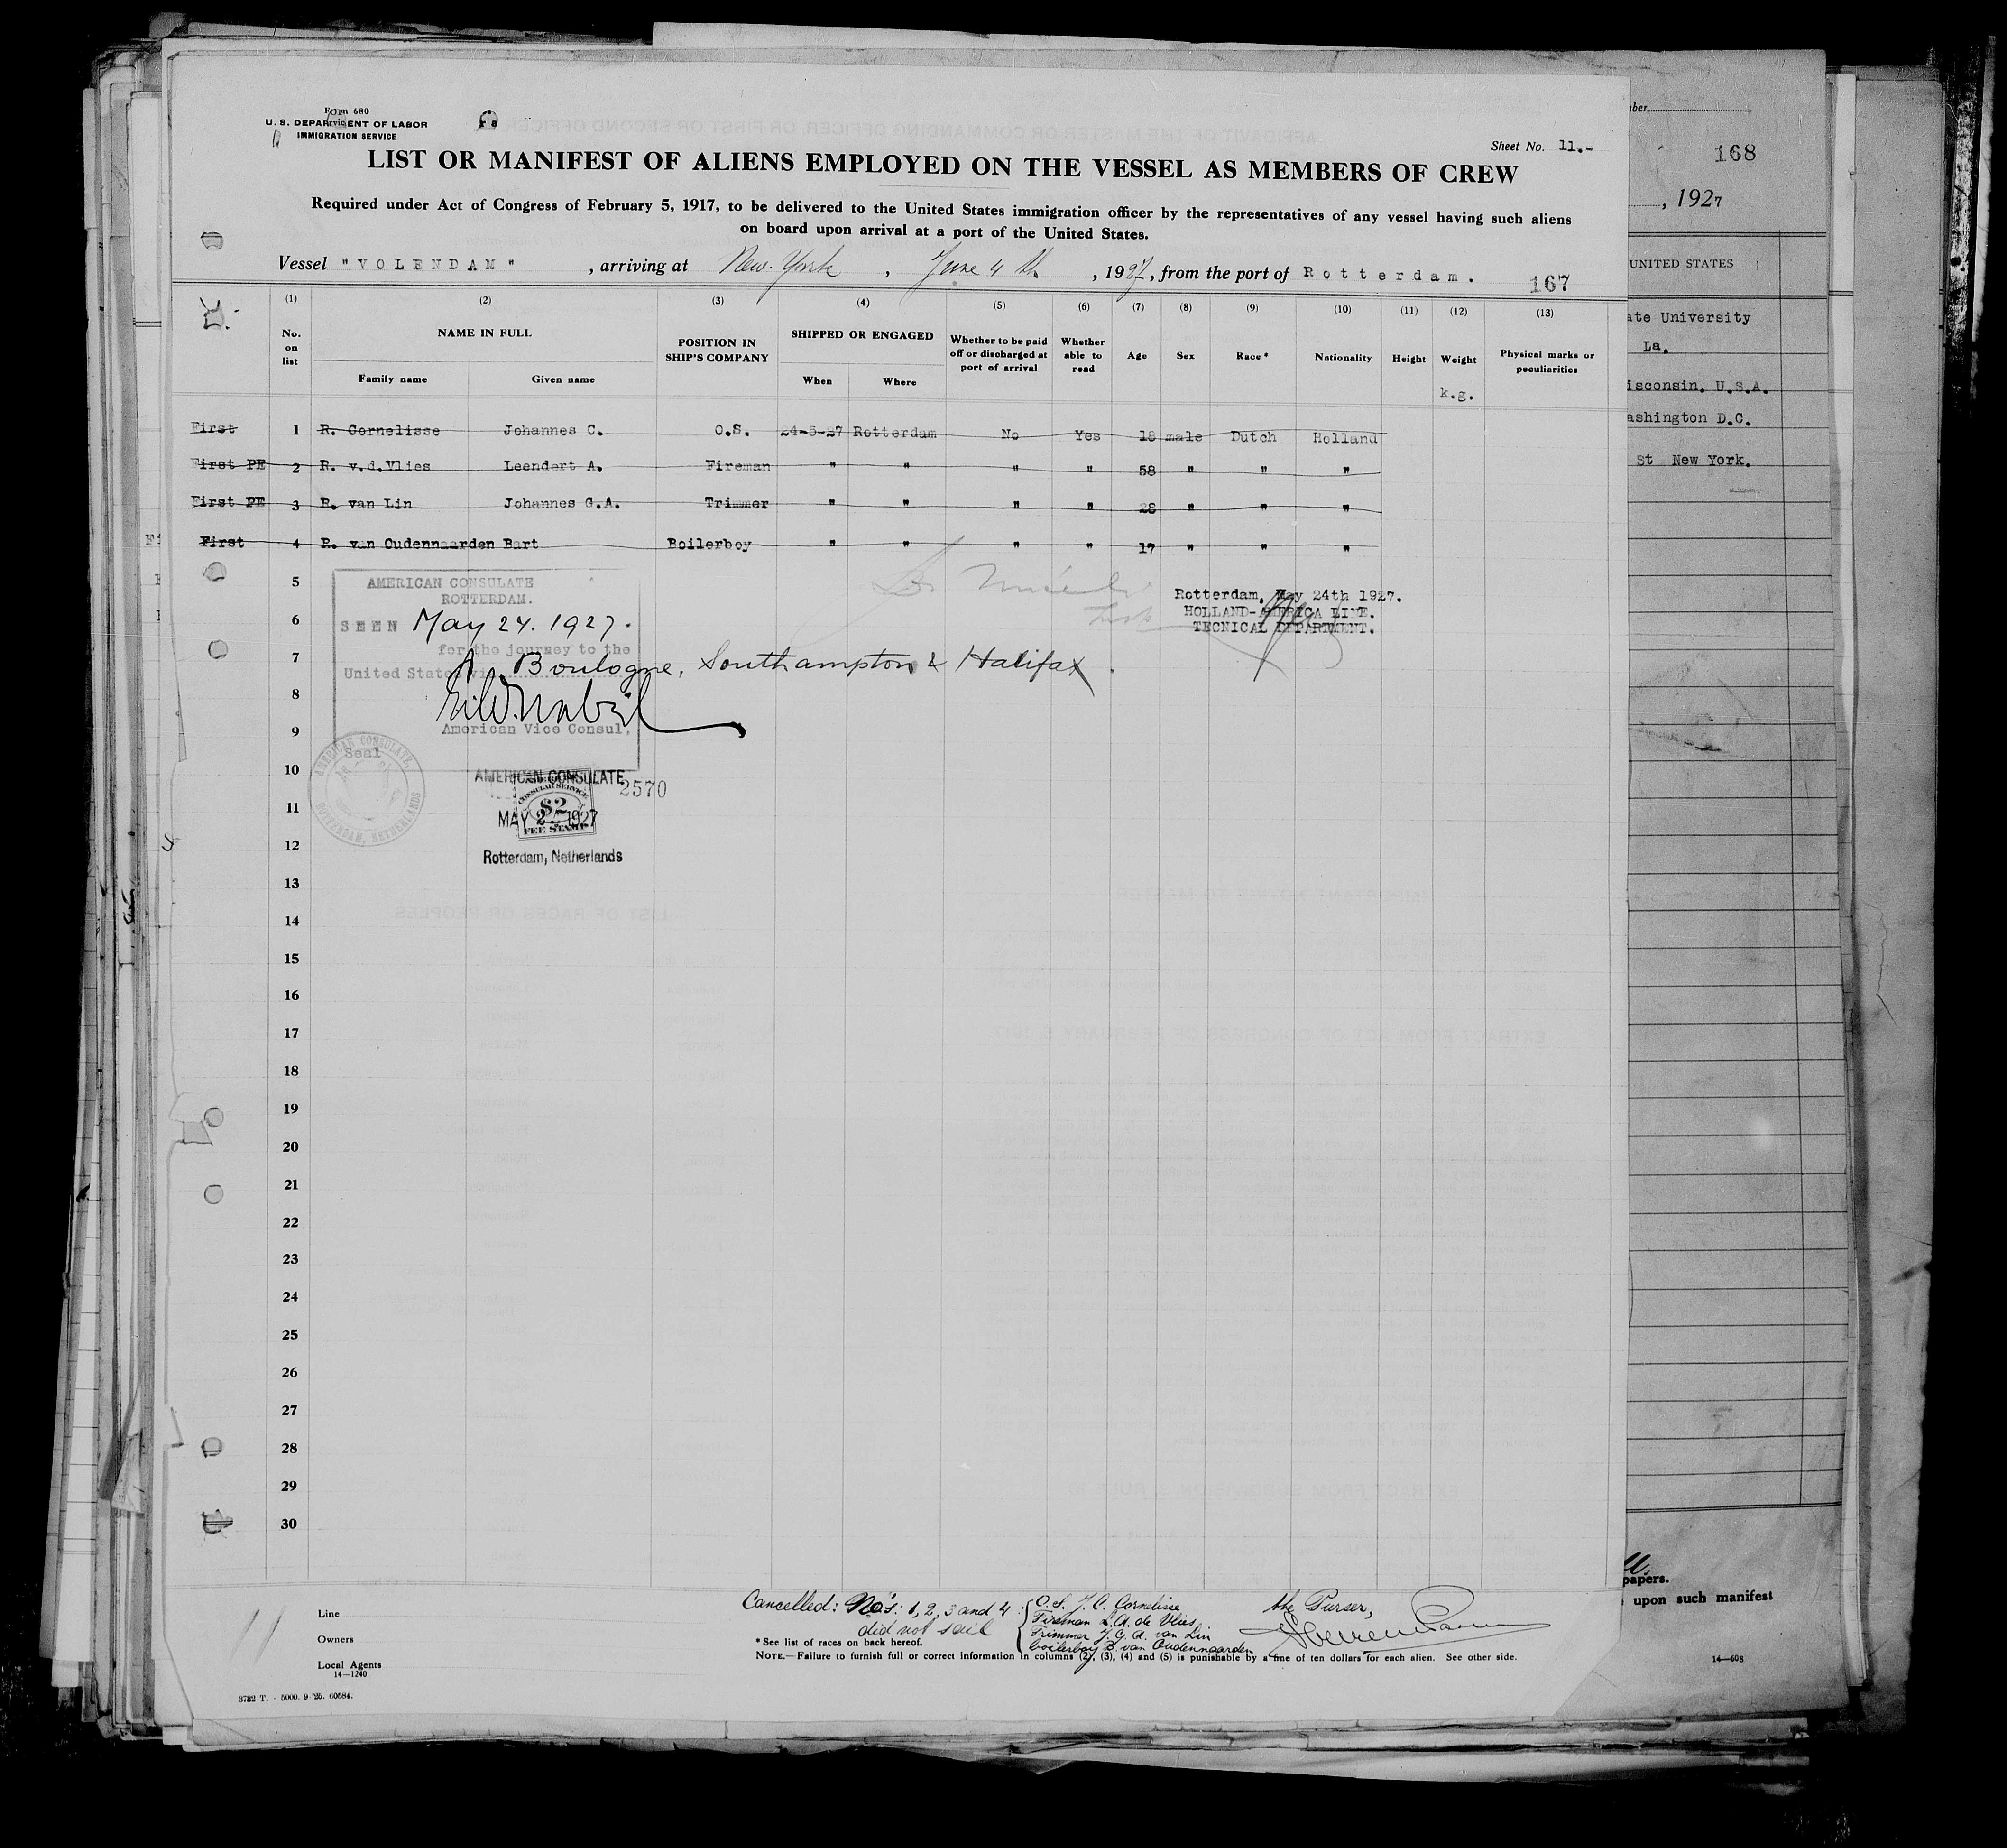 Form 680
U. S. DEPARTMENT OF LABOR
IMMIGRATION SERVICE
Sheet No. 11.-
LIST OR MANIFEST OF ALIENS EMPLOYED ON THE VESSEL AS MEMBERS OF CREW
Required under Act of Congress of February 5, 1917, to be delivered to the United States immigration officer by the representatives of any vessel having such aliens
on board upon arrival at a port of the United States.
Vessel "VOLENDAM", arriving at New-York, June 4th, 1927, from the port of Rotterdam.
167
(1) (2) (3) (4) (5) (6) (7) (8) (9) (10) (11) (12) (13)
No. on list NAME IN FULL POSITION IN SHIP'S COMPANY SHIPPED OR ENGAGED Whether to be paid off or discharged at port of arrival Whether able to read Age Sex Race* Nationality Height Weight Physical marks or peculiarities
Family name Given name When Where k.g.
First 1 R. Cornelisse Johannes C. O.S. 24-5-27 Rotterdam No Yes 18 male Dutch Holland
First PE 2 R. v.d.Vlies Leendert A. Fireman " " " " 58 " " "
First PE 3 R. van Lin Johannes G.A. Trimmer " " " " 28 " " "
First 4 R. van Oudennaarden Bart Boilerboy " " " " 17 " " "
5
6
7
8
9
10
11
12
13
14
15
16
17
18
19
20
21
22
23
24
25
26
27
28
29
30
AMERICAN CONSULATE
ROTTERDAM.
SEEN May 24. 1927.
for the journey to the
United States via Boulogne, Southampton & Halifax.
American Vice Consul,
Seal
AMERICAN CONSULATE,
ROTTERDAM, NETHERLANDS
AMERICAN CONSULATE
2570
CONSULAR SERVICE
$2
FEE STAMP
MAY 2 1927
Rotterdam, Netherlands
Rotterdam, May 24th 1927.
HOLLAND-AMERICA LINE.
TECNICAL DEPARTMENT.
11
Line
Owners
Local Agents
14—1240
3782 T. - 5000. 9-'25. 60584.
Cancelled: No's: 1, 2, 3 and 4
did not sail
O.S. J. C. Cornelisse
Fireman L. A. de Vlies
Trimmer J. G. A. van Lin
boilerboy B. van Oudennaarden
the Purser,
* See list of races on back hereof.
NOTE.—Failure to furnish full or correct information in columns (2), (3), (4) and (5) is punishable by a fine of ten dollars for each alien. See other side.
168
, 1927
UNITED STATES
ate University
La.
isconsin. U.S.A.
ashington D.C.
St New York.
papers.
upon such manifest
14—608